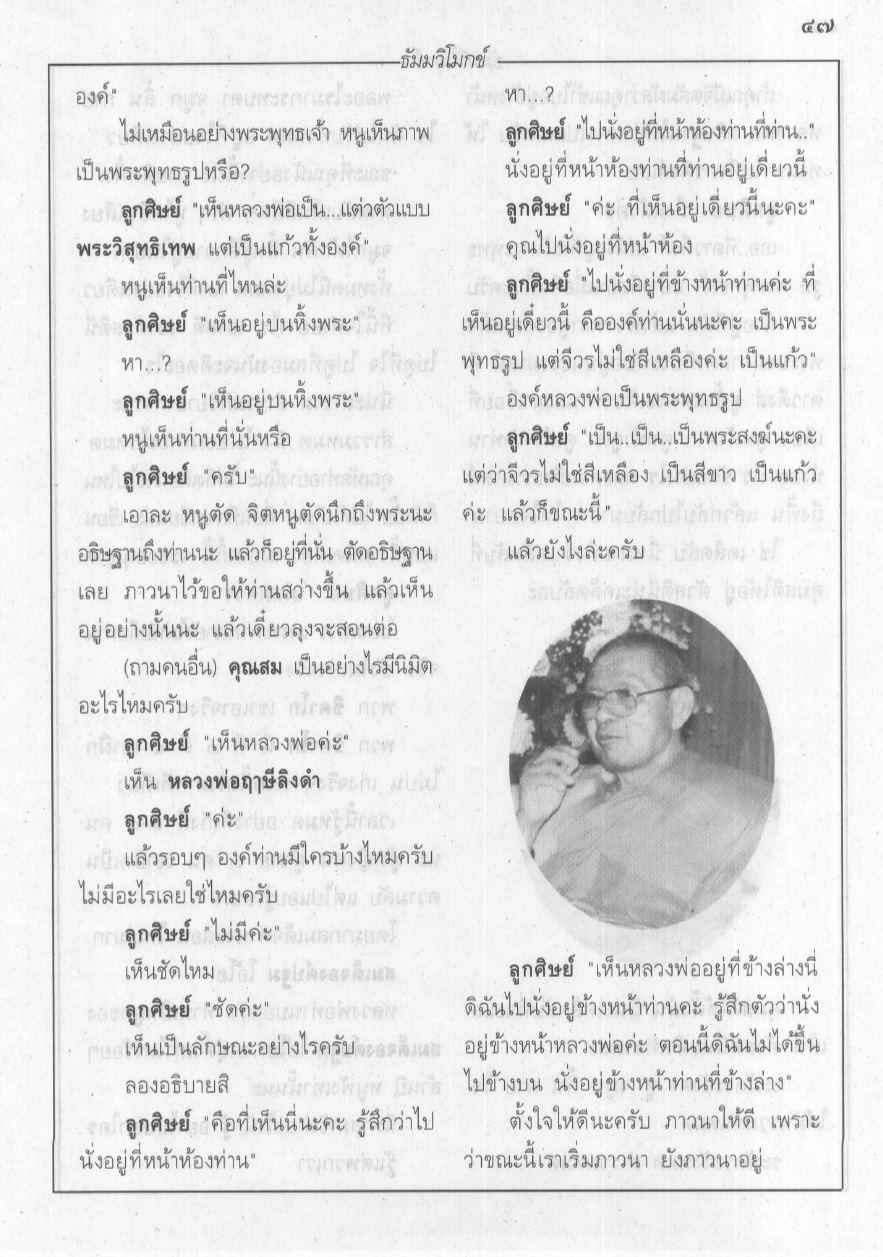 ๔๗
ธัมมวิโมกข์
องค์"
ไม่เหมือนอย่างพระพุทธเจ้า หนูเห็นภาพ
เป็นพระพุทธรูปหรือ?
ลูกศิษย์ "เห็นหลวงพ่อเป็น...แต่วตัวแบบ
พระวิสุทธิเทพ แต่เป็นแก้วทั้งองค์"
หนูเห็นท่านที่ไหนล่ะ
ลูกศิษย์ "เห็นอยู่บนหิ้งพระ"
หา...?
ลูกศิษย์ "เห็นอยู่บนหิ้งพระ"
หนูเห็นท่านที่นั่นหรือ
ลูกศิษย์ "ครับ"
เอาละ หนูตัด จิตหนูตัดนึกถึงพระนะ
อธิษฐานถึงท่านนะ แล้วก็อยู่ที่นั่น ตัดอธิษฐาน
เลย ภาวนาไว้ขอให้ท่านสว่างขึ้น แล้วเห็น
อยู่อย่างนั้นนะ แล้วเดี๋ยวลุงจะสอนต่อ
(ถามคนอื่น) คุณสม เป็นอย่างไรมีนิมิต
อะไรไหมครับ
ลูกศิษย์ "เห็นหลวงพ่อค่ะ"
เห็น หลวงพ่อฤๅษีลิงดำ
ลูกศิษย์ "ค่ะ"
แล้วรอบๆ องค์ท่านมีใครบ้างไหมครับ
ไม่มีอะไรเลยใช่ไหมครับ
ลูกศิษย์ "ไม่มีค่ะ"
เห็นชัดไหม
ลูกศิษย์ "ชัดค่ะ"
เห็นเป็นลักษณะอย่างไรครับ
ลองอธิบายสิ
ลูกศิษย์ "คือที่เห็นนี่นะคะ รู้สึกว่าไป
นั่งอยู่ที่หน้าห้องท่าน"
หา...?
ลูกศิษย์ "ไปนั่งอยู่ที่หน้าห้องท่านที่ท่าน.."
นั่งอยู่ที่หน้าห้องท่านที่ท่านอยู่เดี่ยวนี้
ลูกศิษย์ "ค่ะ ที่เห็นอยู่เดี่ยวนี้นะคะ"
คุณไปนั่งอยู่ที่หน้าห้อง
ลูกศิษย์ "ไปนั่งอยู่ที่ข้างหน้าท่านค่ะ ที่
เห็นอยู่เดี๋ยวนี้ คือองค์ท่านนั่นนะคะ เป็นพระ
พุทธรูป แต่จีวรไม่ใช่สีเหลืองค่ะ เป็นแก้ว"
องค์หลวงพ่อเป็นพระพุทธรูป
ลูกศิษย์ "เป็น..เป็น..เป็นพระสงฆ์นะคะ
แต่ว่าจีวรไม่ใช่สีเหลือง เป็นสีขาว เป็นแก้ว
ค่ะ แล้วก็ขณะนี้"
แล้วยังไงล่ะครับ
ลูกศิษย์ "เห็นหลวงพ่ออยู่ที่ข้างล่างนี่
ดิฉันไปนั่งอยู่ข้างหน้าท่านคะ รู้สึกตัวว่านั่ง
อยู่ข้างหน้าหลวงพ่อค่ะ ตอนนี้ดิฉันไม่ได้ขึ้น
ไปข้างบน นั่งอยู่ข้างหน้าท่านที่ข้างล่าง"
ตั้งใจให้ดีนะครับ ภาวนาให้ดี เพราะ
ว่าขณะนี้เราเริ่มภาวนา ยังภาวนาอยู่